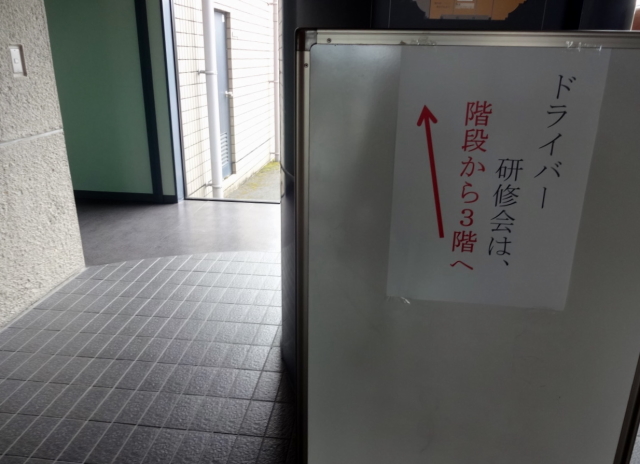 ドライバー
研修会は、
階段から3階へ